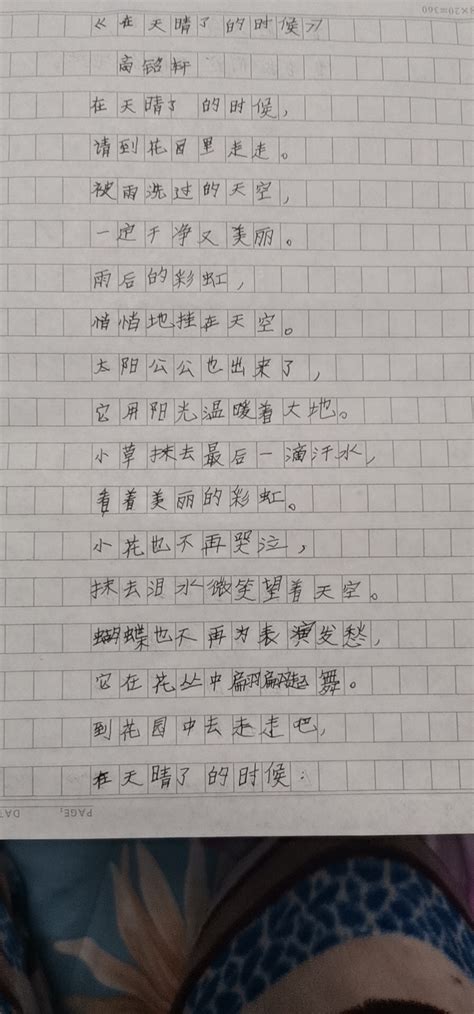 ×20=360
《在天晴了的时候》
高铭轩
在天晴了的时候，
请到花园里走走。
被雨洗过的天空，
一定干净又美丽。
雨后的彩虹，
悄悄地挂在天空。
太阳公公也出来了，
它用阳光温暖着大地。
小草抹去最后一滴汗水，
看着美丽的彩虹。
小花也不再哭泣，
抹去泪水微笑望着天空。
蝴蝶也不再为表演发愁，
它在花丛中翩翩起舞。
到花园中去走走吧，
在天晴了的时候：
PAGE,
DAT